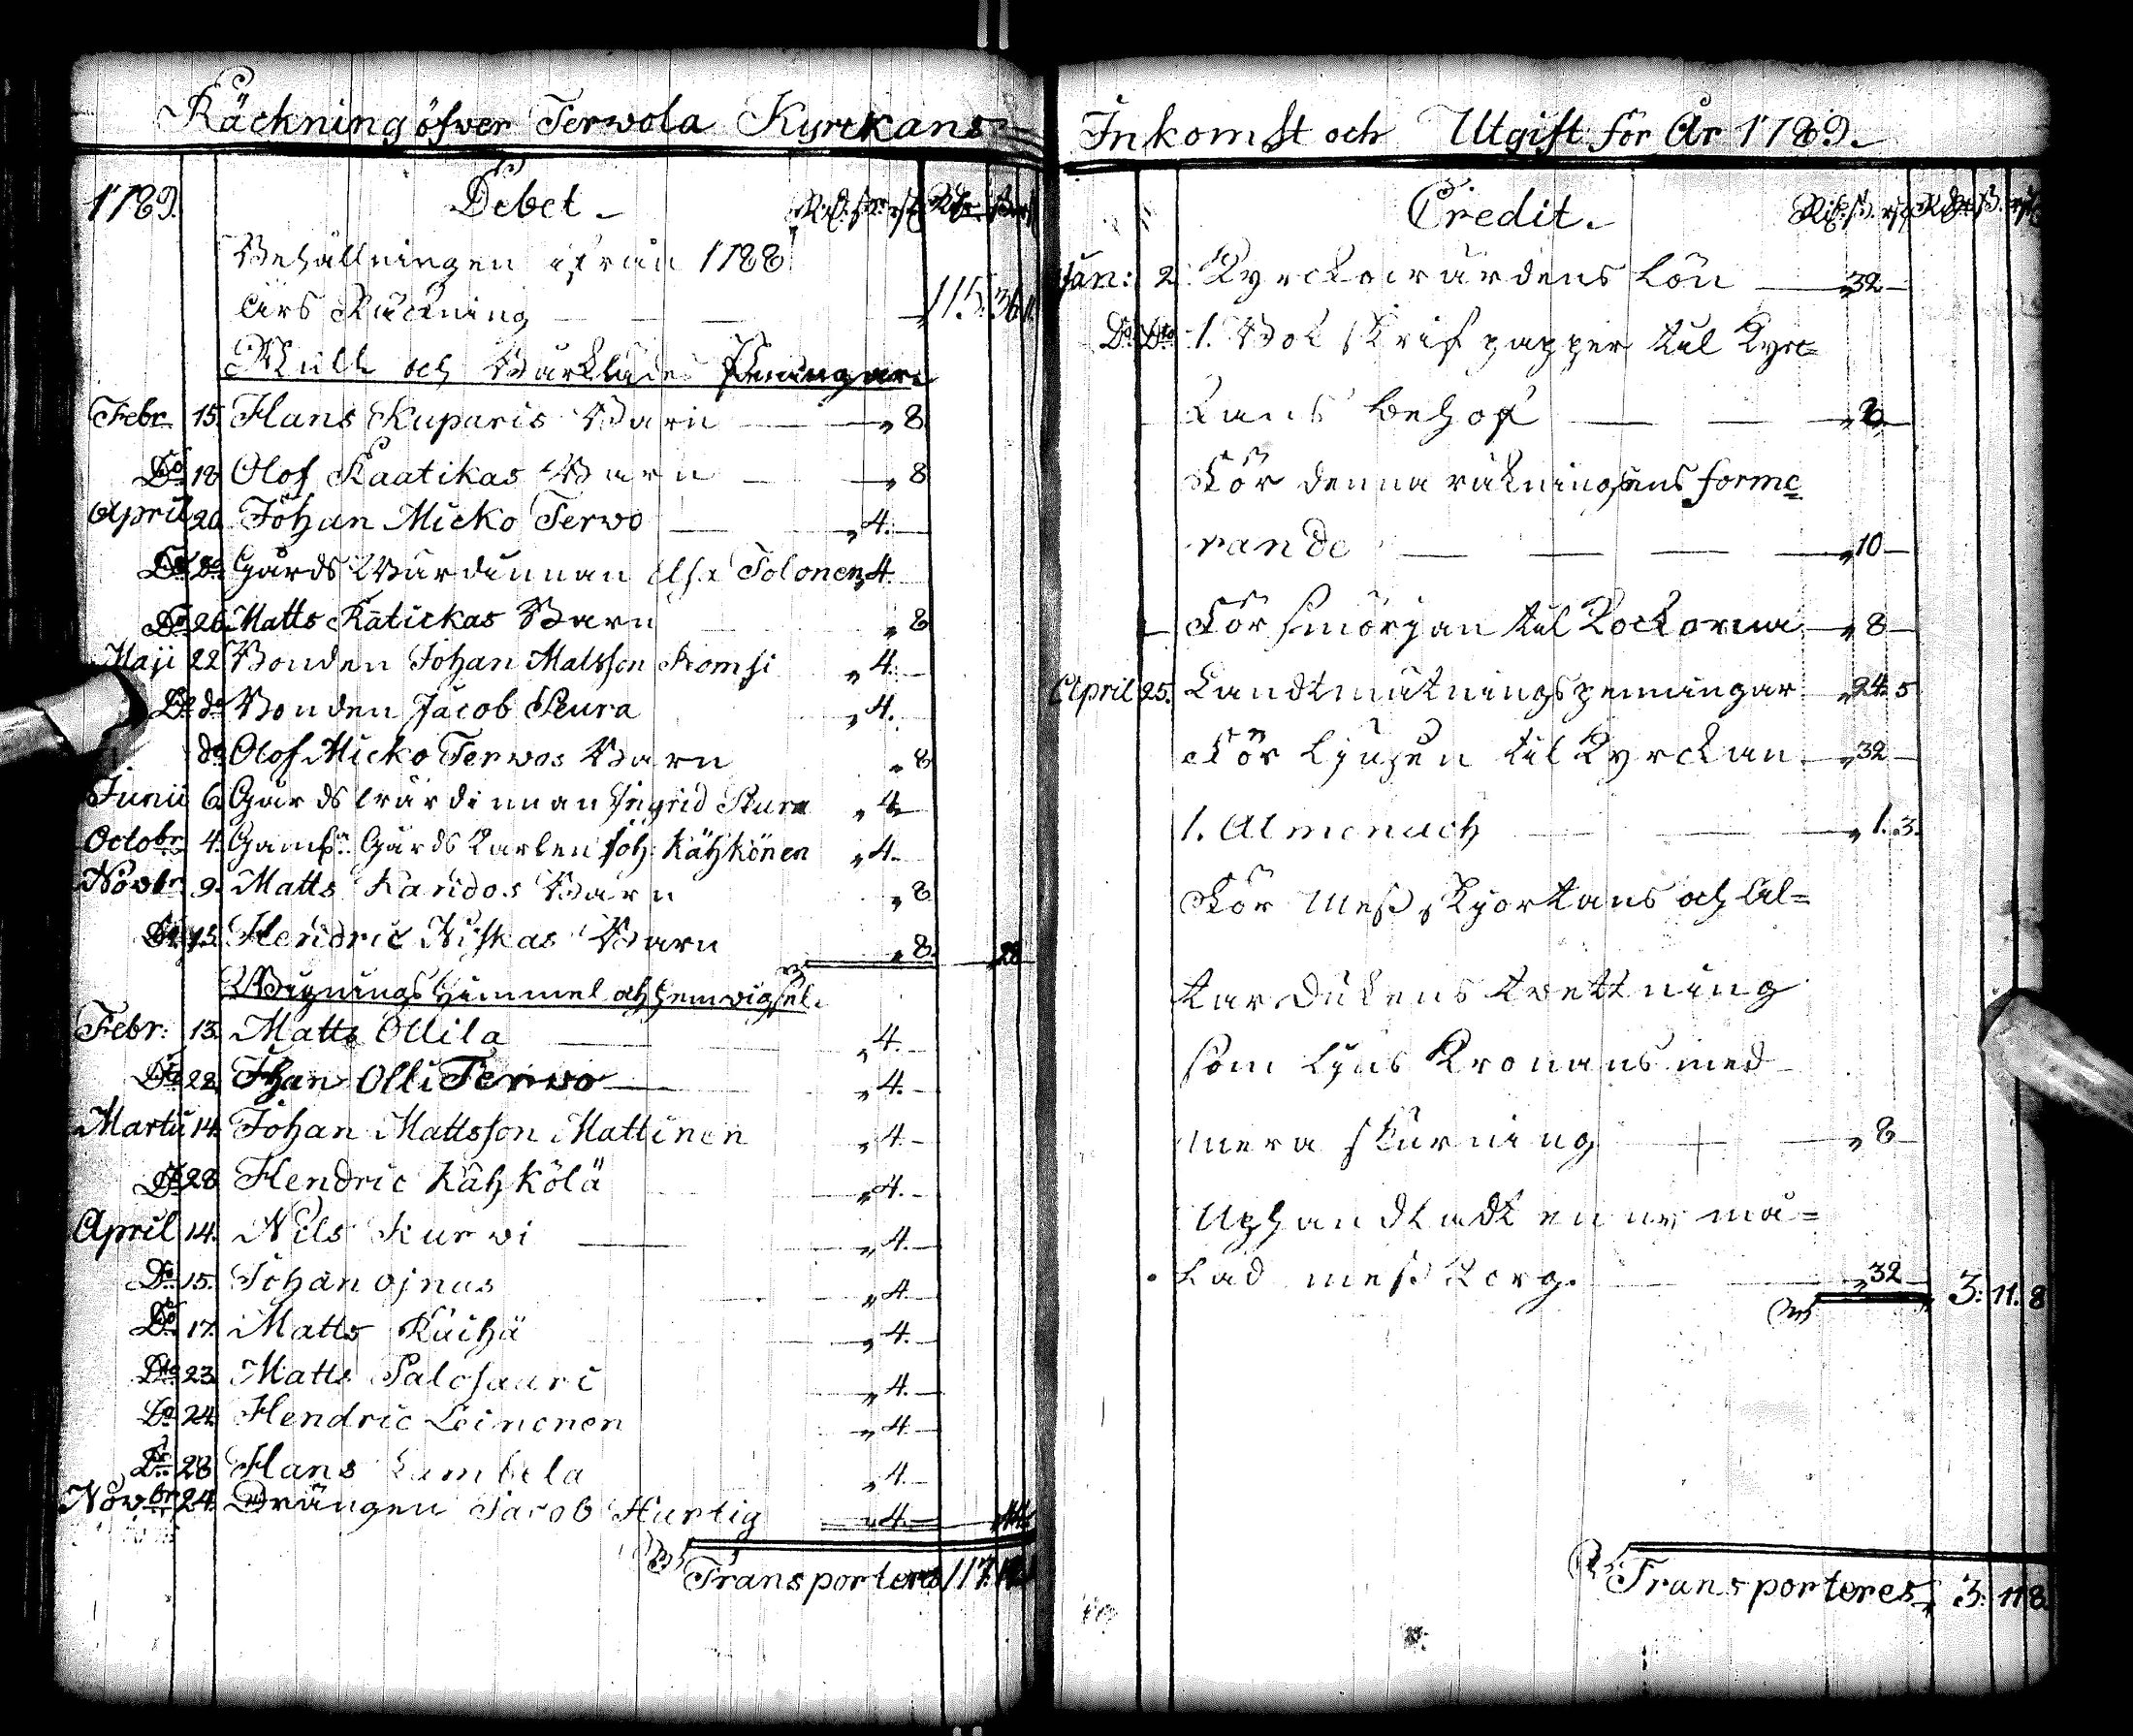 Räckning öfver Terwola Kyrckans
1789. Debet.
Behållningen ifrån 1788
års Räckning 115. 36. 11.
Mull och Bårklädes Penningar
Febr. 15. Hans Kuparis Barn 8
Do 18 Olof Kaatikas Barn 8
April 20 Johan Micko Terwo 4.
Do do Gårds Wärdinnan Tolonen 4.
Do 26. Matts Katickas Barn 8
Maji 22 Bonden Johan Matsson Komsi 4.
Do do Bonden Jacob Peura 4.
do Olof Micko Terwos Barn 8
Junii 6. Gårds wärdinnan Ingrid 4
Octobr. 4. Gårds Karlen Joh: Kähkönen 4.
Novbr. 9. Matts Barn 8
Do 15. Hendric Niskas Barn 8. 28
Wignings Himmel och hemvigsel.
Febr: 13. Matts Ollila 4.
Do 22. Johan Olli Terwo 4.
Martii 14. Johan Mattsson Mattinen 4.
Do 28 Hendric Kähkölä 4.
April 14. Nils Kurvi 4.
Do 15. Johan ojnas 4.
Do 17. Matts Kuihä 4.
Dto 23. Matts Palosaari 4.
Do 24. Hendric Leinonen 4.
Do 28 Hans Lambela 4.
Novbr. 24. Drängen Jacob Hurtig 4. 44
Transporteres 117.
Inkomst och Utgift för År 1789.
Credit.
Jan: 2. Kyrckowärdens Lön 32
Do Dto 1. Bok Skrif papper till Kyrc=
kans behof 8
För denna räkningens forme=
rande 10
För smörjan till Klockorna 8
April 25. Landtmätningspenningar 24. 5
För Ljusen till Kyrckan 32
1. Almenach 1. 3.
För Mess skjortans och Al=
tar dukens twettning
som Ljus Kronans med
mera skurning 8
Uphandladt en ny må=
lad mess korg. 32 3. 11. 8
Transporteres 3. 11 8.